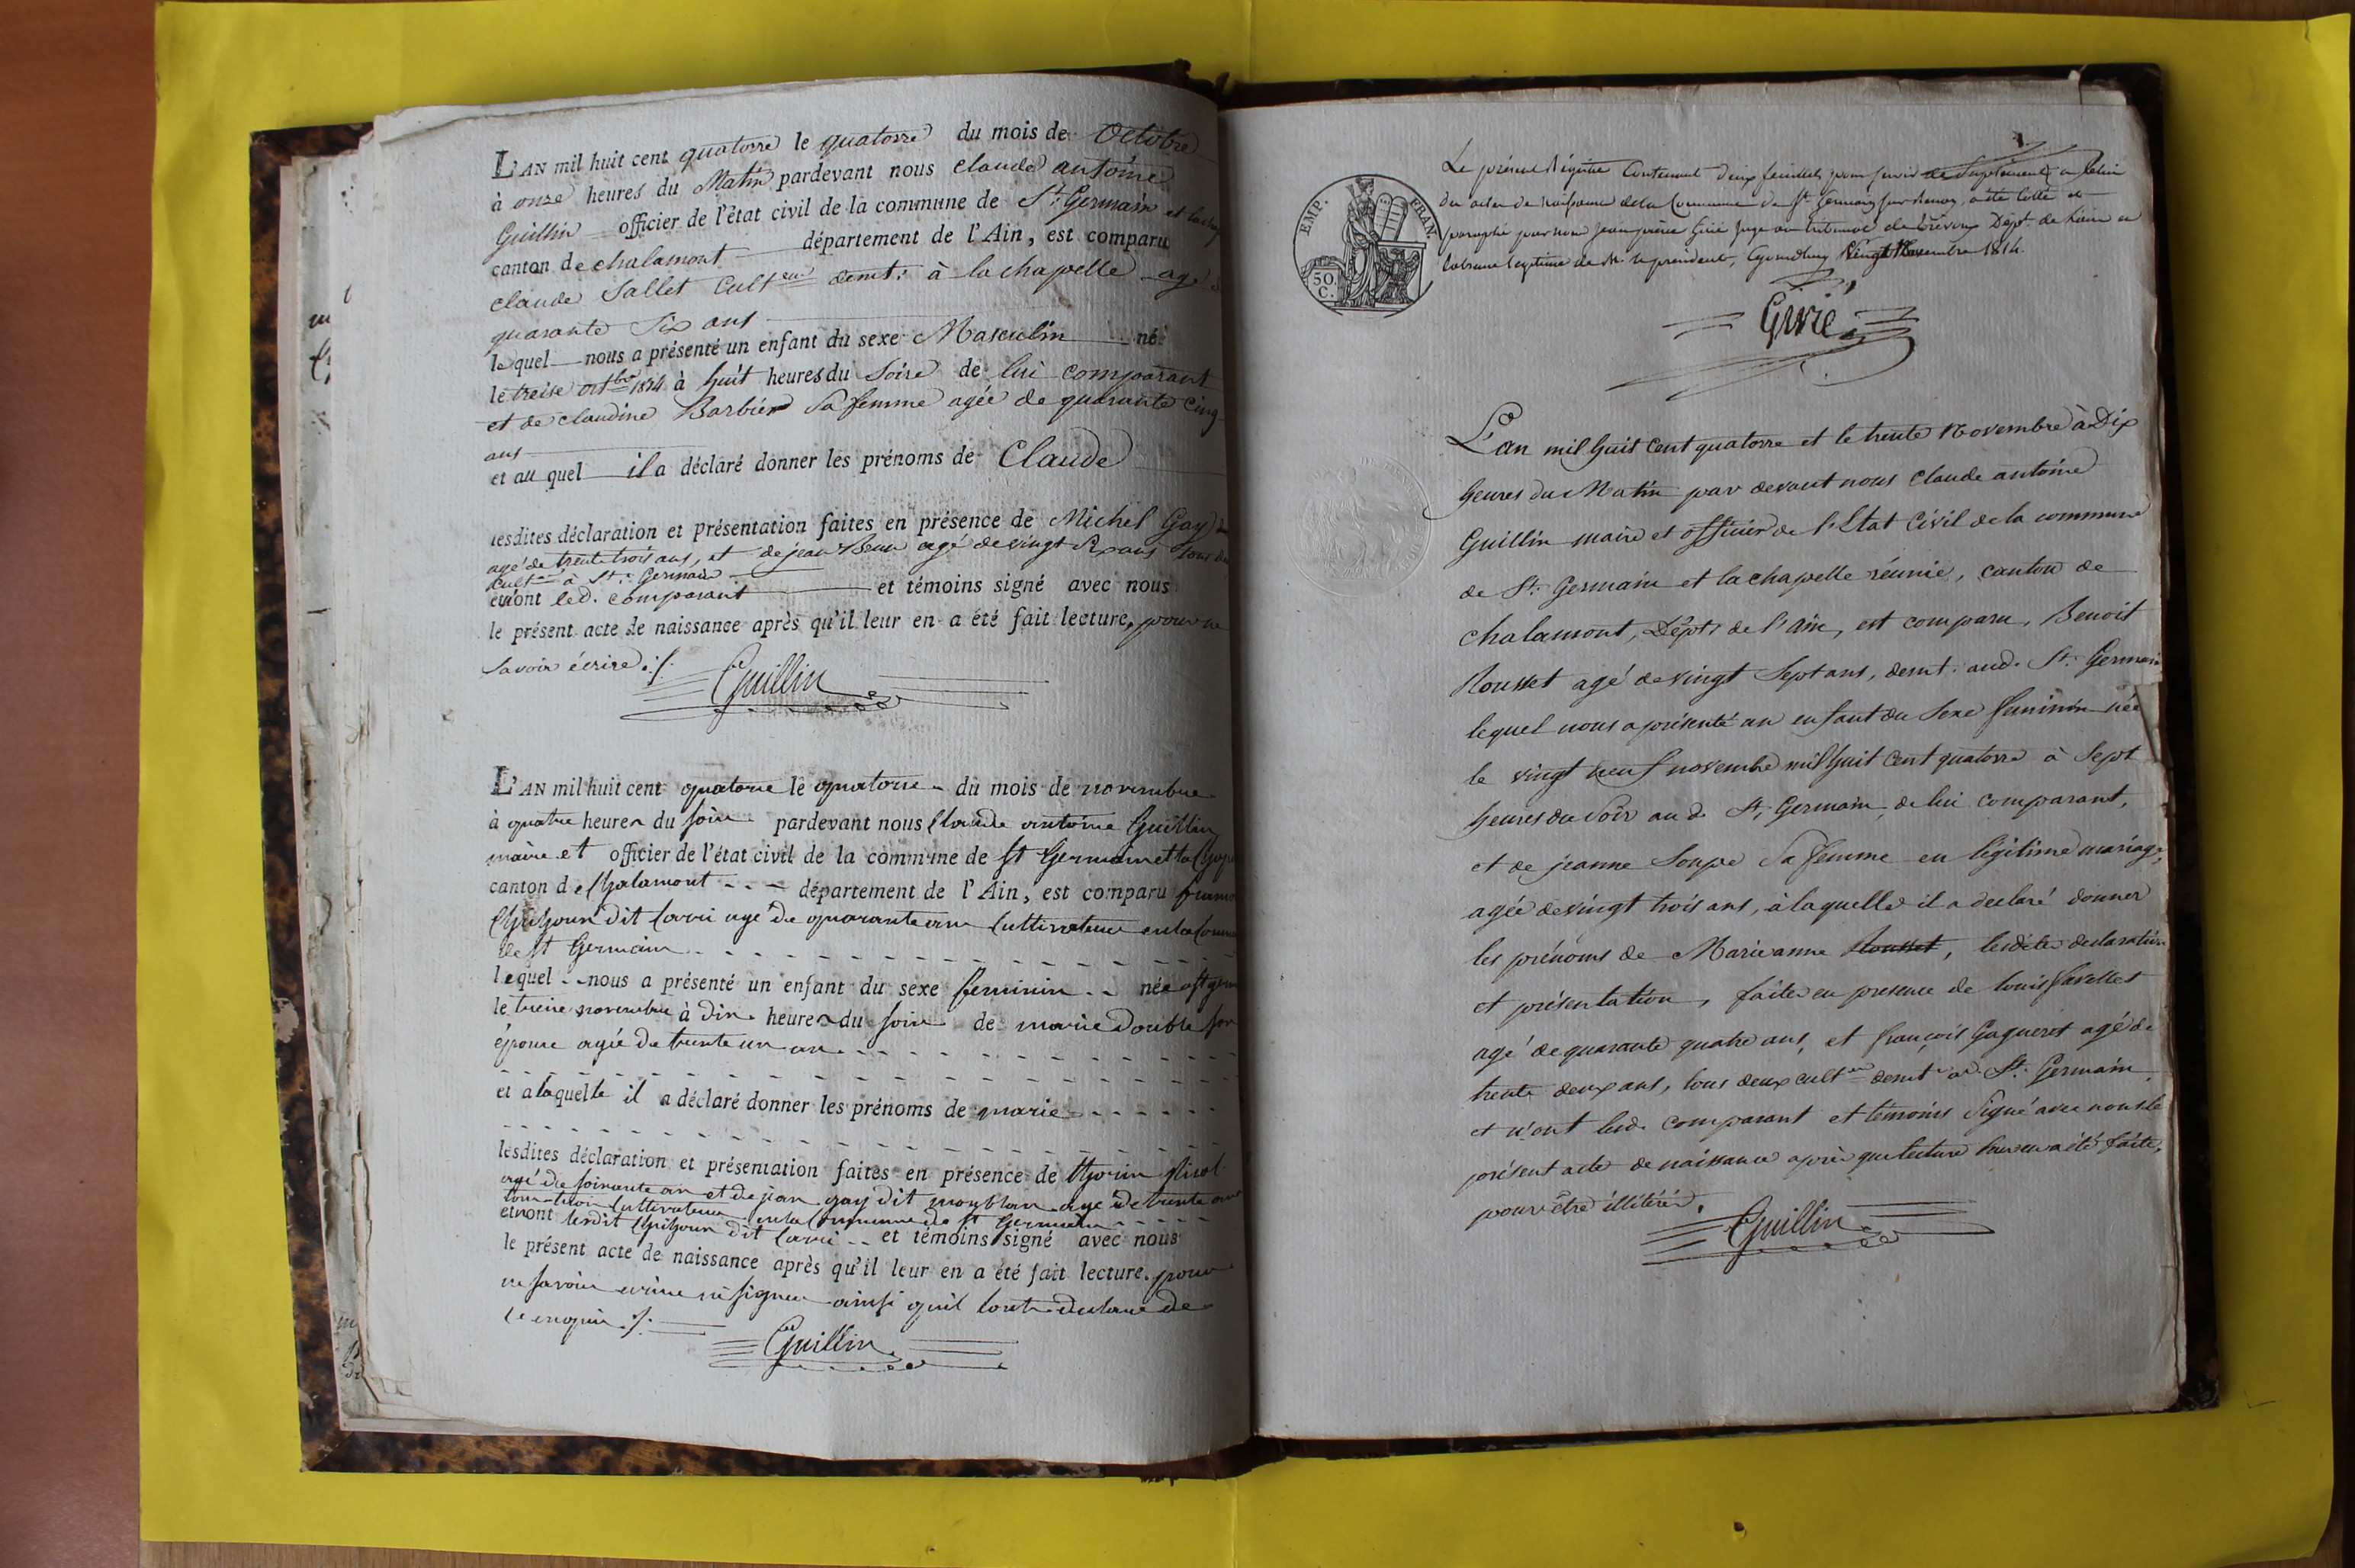 L'AN mil huit cent quatorze le quatorze du mois de Octobre
à onze heures du Matin pardevant nous claude antoine
Guillin officier de l'état civil de la commune de St. Germain et
canton de chalamont département de l'Ain, est comparu
claude Sallet CultEur demt. à la chapelle agé
quarante Six ans
lequel nous a présenté un enfant du sexe Masculin né
le treise octbre 1814 à huit heures du Soire de lui comparant
et de claudine Barbier Sa femme agée de quarante cinq
ans
et au quel il a déclaré donner les prénoms de Claude
lesdites déclaration et présentation faites en présence de Michel Gay
agé de trente trois ans, et de jean agé de vingt ans
à St. Germain
et n'ont led. comparant et témoins signé avec nous
le présent acte de naissance après qu'il leur en a été fait lecture, pour ne
Savoir écrire ./.
Guillin
L'AN mil huit cent quatorze le quatorze du mois de novembre
à quatre heures du soire pardevant nous Claude antoine Guillin
maire et officier de l'état civil de la commune de st Germain et la
canton de Chalamont département de l'Ain, est comparu
dit agé de quarante ans Cultivateur en la
de st Germain
lequel nous a présenté un enfant du sexe feminin née a st
le treize novembre à dix heures du soire de marie Double son
épouse agée de trente un an
et a laquelle il a déclaré donner les prénoms de marie
lesdites déclaration et présentation faites en présence de
agé de soixante an et de jean gay dit agé de trente
Cultivateur en la Commune de st Germain
et n'ont dit et témoins signé avec nous
le présent acte de naissance après qu'il leur en a été fait lecture, pour
ne savoir écrire ni signer ainsi qu'il de
ce enquis ./.
Guillin
EMP. FRAN.
50 C.
Le présent Régistre Contenant deux feuillets pour servir de Suplement a Celui
des actes de naissance de la Commune de St Germain sur Renon, a été Cotté et
paraphé par nous jean pierre Giriè juge au tribunal de Trévoux Dépt. de l'ain en
l'absence legitime de Mr. le president, Novembre 1814.
Giriè
L'an mil huit cent quatorze et le trente Novembre à Dix
heures du Matin par devant nous Claude antoine
Guillin maire et officier de l'Etat Civil de la commune
de St. Germain et la chapelle réunie, canton de
chalamont, Dépt. de l'Ain, est comparu, Benoit
Rousset agé de vingt Sept ans, demt. aud. St. Germain
lequel nous a présenté un enfant du Sexe feminin née
le vingt neuf novembre mil huit cent quatorze à Sept
heures du Soir aud. St. Germain, de lui comparant,
et de jeanne Soupe Sa femme en légitime mariage,
agée de vingt trois ans, à laquelle il a declaré donner
les prénoms de Marieanne Rousset, lesdites declaration
et présentation, faites en presence de louis
agé de quarante quatre ans, et françois agé de
trente deux ans, tous deux cultrs demt ad. St. Germain,
et n'ont lesd. comparant et témoins Signé avec nous le
présent acte de naissance après que lecture leur en a été faite,
pour être illitéré.
Guillin